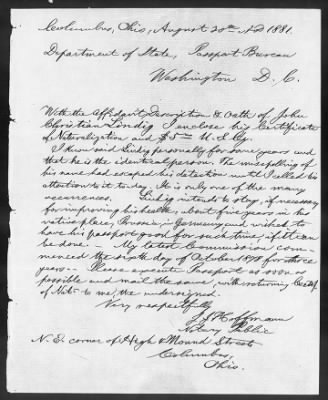 Columbus, Ohio, August 20th AD 1881.
Department of State, Passport Bureau
Washington D. C.
With the Affidavit Description & Oath of John
Christian Lindig I enclose his Certificate
of Naturalization and $5.00 U. S. Cy.
I know said Lindig personally for some years and
that he is the identical person. The misspelling of
his name had escaped his detection until I called his
attention to it to day. It is only one of the many
occurrences. Lindig intends to stay, if necessary
for improving his health, about five years in his
native place, Prussia - Germany and wish to
have his passport good for such time, if it can
be done. — My latest Commission com-
menced the sixth day of October 1878 for three
years — Please execute Passport as soon as
possible and mail the same, with returning Certif.
of Nat. to me, the undersigned.
Very respectfully
Hoffmann
Notary Public
N. E. corner of High & Mound Streets
Columbus,
Ohio.